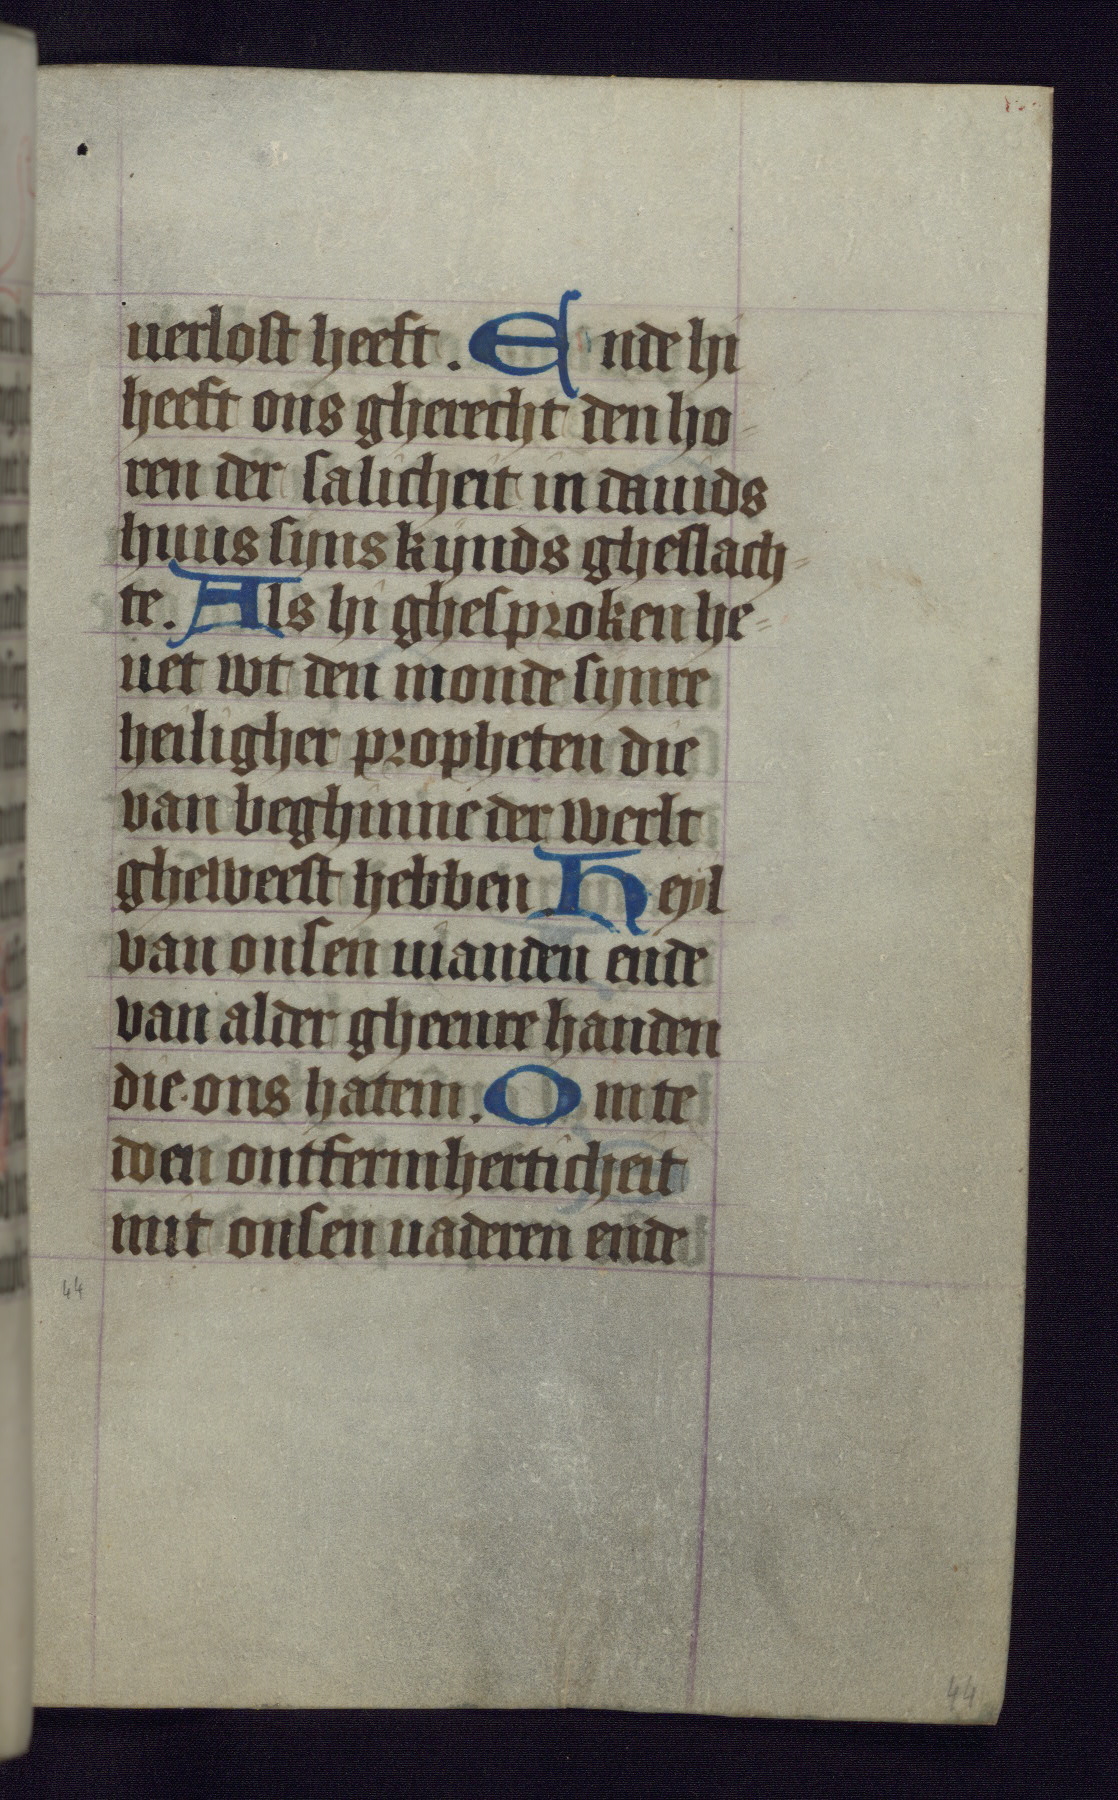 uerlost heeft. Ende hi
heeft ons gherecht den ho=
ren der salicheit in dauids
huus sijns kijnds gheslach=
te. Als hi ghesproken he=
uet wt den monde sijnre
heiligher propheten die
van beghinne der werlt
gheweest hebben. Heyl
van onsen uianden ende
van alder gheenre handen
die ons hatem. Om te
doen ontfermherticheit
mit onsen uaderen ende
44
44